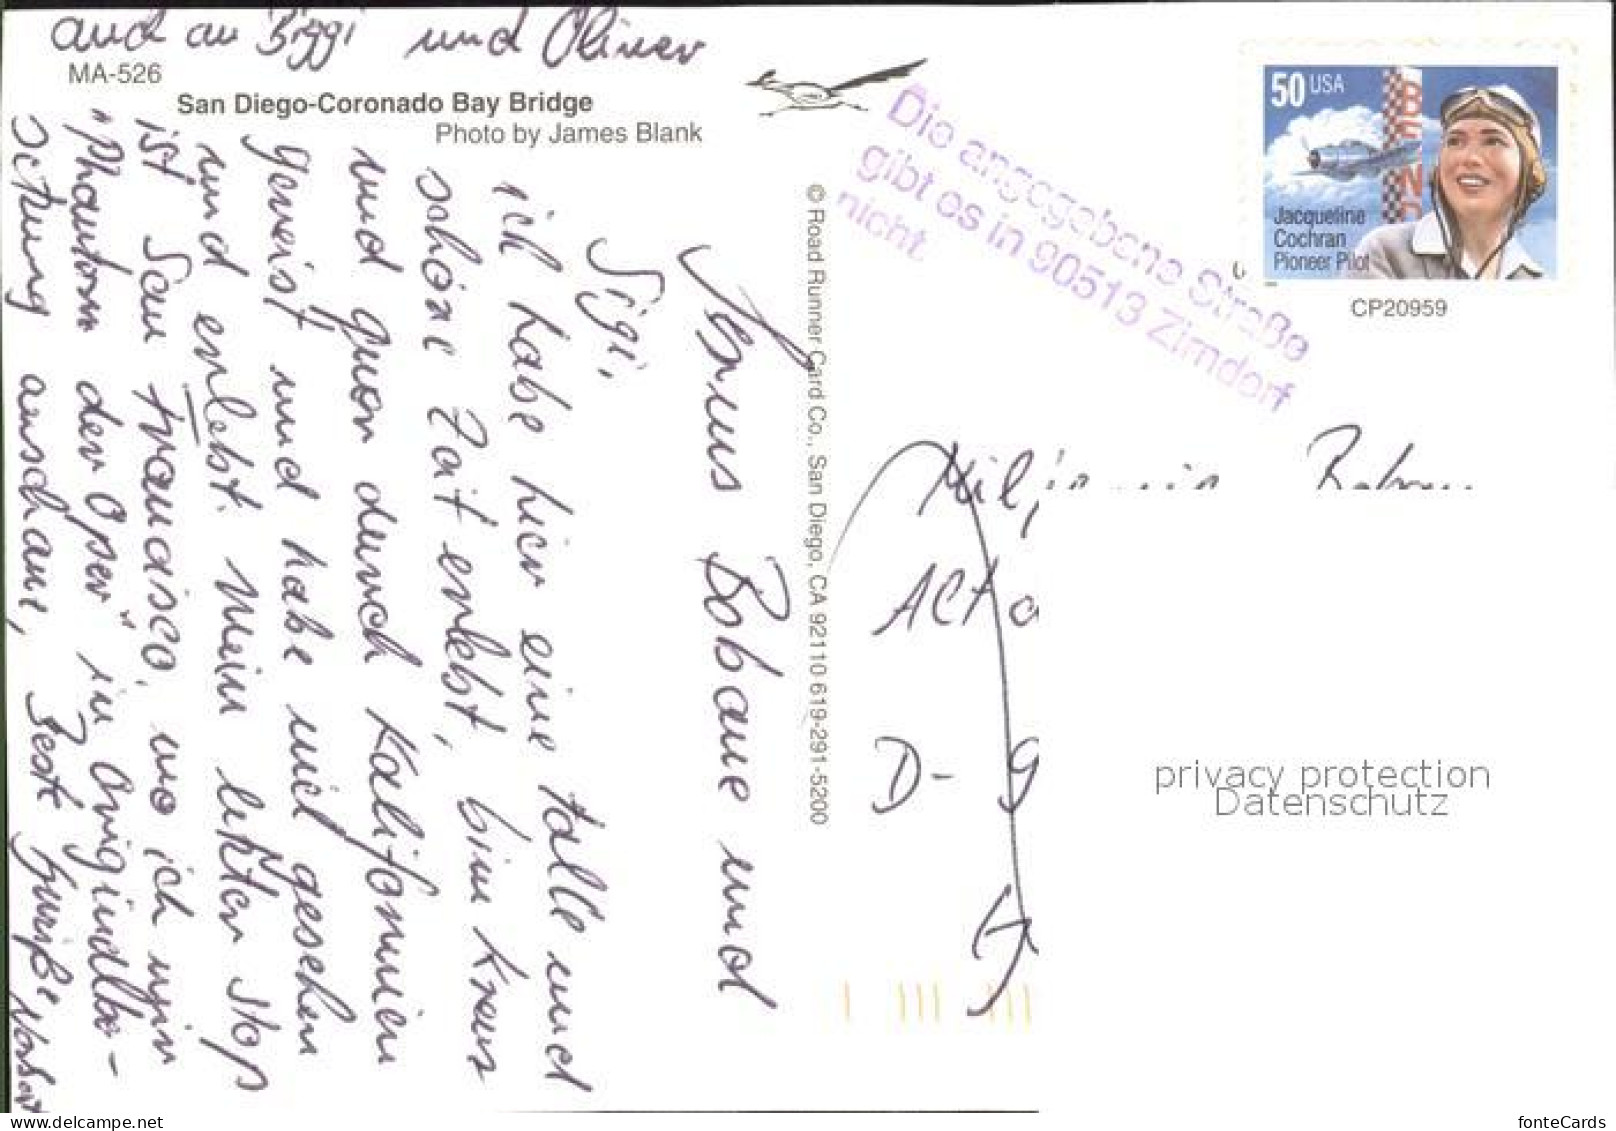 auch an Biggi und Oliver
MA-526
San Diego-Coronado Bay Bridge
Photo by James Blank
Die angegebene Straße
gibt es in 90513 Zirndorf
nicht.
50 USA
BENDIX
Jacqueline
Cochran
Pioneer Pilot
CP20959
© Road Runner Card Co., San Diego, CA 92110 619-291-5200
Servus Babane und
Sigi,
ich habe hier eine tolle und
schöne Zeit erlebt, bin kreuz
und quer durch Kalifornien
gereist und habe viel gesehen
und erlebt. Mein letzter Stop
ist San Franzisco, wo ich mir
"Phantom der Oper" in Originalbe-
setzung anschaue, Beste Grüße Norbert
D- 9
privacy protection
Datenschutz
www.delcampe.net
fonteCards